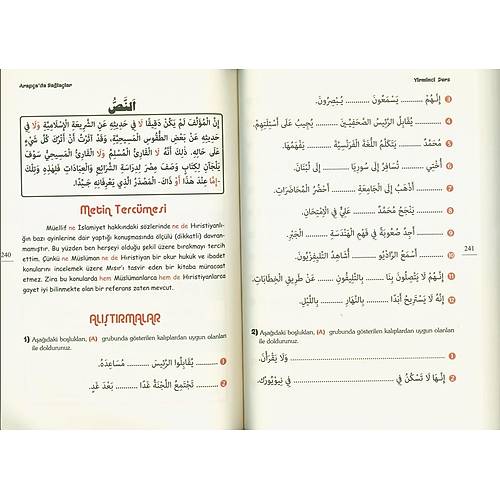 Arapça'da Bağlaçlar
اَلنَّصُّ
إِنَّ الْمُؤَلِّفَ لَمْ يَكُنْ دَقِيقًا لَا فِي حَدِيثِهِ عَنِ الشَّرِيعَةِ الْإِسْلَامِيَّةِ وَلَا فِي
حَدِيثِهِ عَنْ بَعْضِ الطُّقُوسِ الْمَسِيحِيَّةِ، وَقَدْ آثَرْتُ أَنْ أَتْرُكَ كُلَّ شَيْءٍ
عَلَى حَالِهِ. ذَلِكَ أَنَّهُ لَا الْقَارِئُ الْمُسْلِمُ وَلَا الْقَارِئُ الْمَسِيحِيُّ سَوْفَ
يَلْجَآنِ لِكِتَابِ وَصْفِ مِصْرَ لِدِرَاسَةِ الشَّرَائِعِ وَالْعِبَادَاتِ فَلِهَذِهِ وَتِلْكَ
-إِمَّا عِنْدَ هَذَا أَوْ ذَاكَ- الْمَصْدَرُ الَّذِي يَعْرِفَانِهِ جَيِّدًا.
Metin Tercümesi
Müellif ne İslamiyet hakkındaki sözlerinde ne de Hıristiyanlı-
ğın bazı ayinlerine dair yaptığı konuşmasında ölçülü (dikkatli) davran-
mamıştır. Bu yüzden ben herşeyi olduğu şekil üzere bırakmayı tercih
ettim. Çünkü ne Müslüman ne de Hıristiyan bir okur hukuk ve ibadet
konularını incelemek üzere Mısır'ı tasvir eden bir kitaba müracaat
etmez. Zira bu konularda hem Müslümanlarca hem de Hıristiyanlarca
gayet iyi bilinmekte olan bir referans zaten mevcut.
240
ALIŞTIRMALAR
1) Aşağıdaki boşlukları, (A) grubunda gösterilen kalıplardan uygun olanları
ile doldurunuz.
1 يُقَابِلُوا الرَّئِيسَ .......... مُسَاعِدَهُ.
2 تَجْتَمِعُ اللَّجْنَةُ غَدًا .......... بَعْدَ غَدٍ.
Yirminci Ders
3 إِنَّهُمْ .......... يَسْمَعُونَ .......... يُبْصِرُونَ.
4 .......... يُقَابِلُ الرَّئِيسُ الصَّحَفِيِّينَ .......... يُجِيبُ عَلَى أَسْئِلَتِهِمْ.
5 مُحَمَّدٌ .......... يَتَكَلَّمُ اللُّغَةَ الْفَرَنْسِيَّةَ .......... يَفْهَمُهَا.
6 أُخْتِي .......... تُسَافِرُ إِلَى سُورِيَا .......... إِلَى لُبْنَانَ.
7 .......... أَذْهَبُ إِلَى الْجَامِعَةِ .......... أَحْضُرُ الْمُحَاضَرَاتِ.
8 .......... يَنْجَحُ مُحَمَّدٌ .......... عَلِيٌّ فِي الْاِمْتِحَانِ.
9 .......... أَجِدُ صُعُوبَةً فِي فَهْمِ الْهَنْدَسَةِ .......... الْجَبْرِ.
10 .......... أَسْمَعُ الرَّادِيُو .......... أُشَاهِدُ التِّلِفِزْيُونَ.
11 إِنَّهُمْ لَا يَتَّصِلُونَ بِنَا .......... بِالتِّلِيفُونِ .......... عَنْ طَرِيقِ الْخِطَابَاتِ.
12 إِنَّهُ لَا يَسْتَرِيحُ أَبَدًا .......... بِالنَّهَارِ .......... بِاللَّيْلِ.
241
2) Aşağıdaki boşlukları, (A) grubunda gösterilen kalıplardan uygun olanları
ile doldurunuz.
1 .......... وَلَا يَقْرَأْنَ.
2 إِنَّهَا لَا تَسْكُنُ فِي .......... فِي نِيُويُورْك.